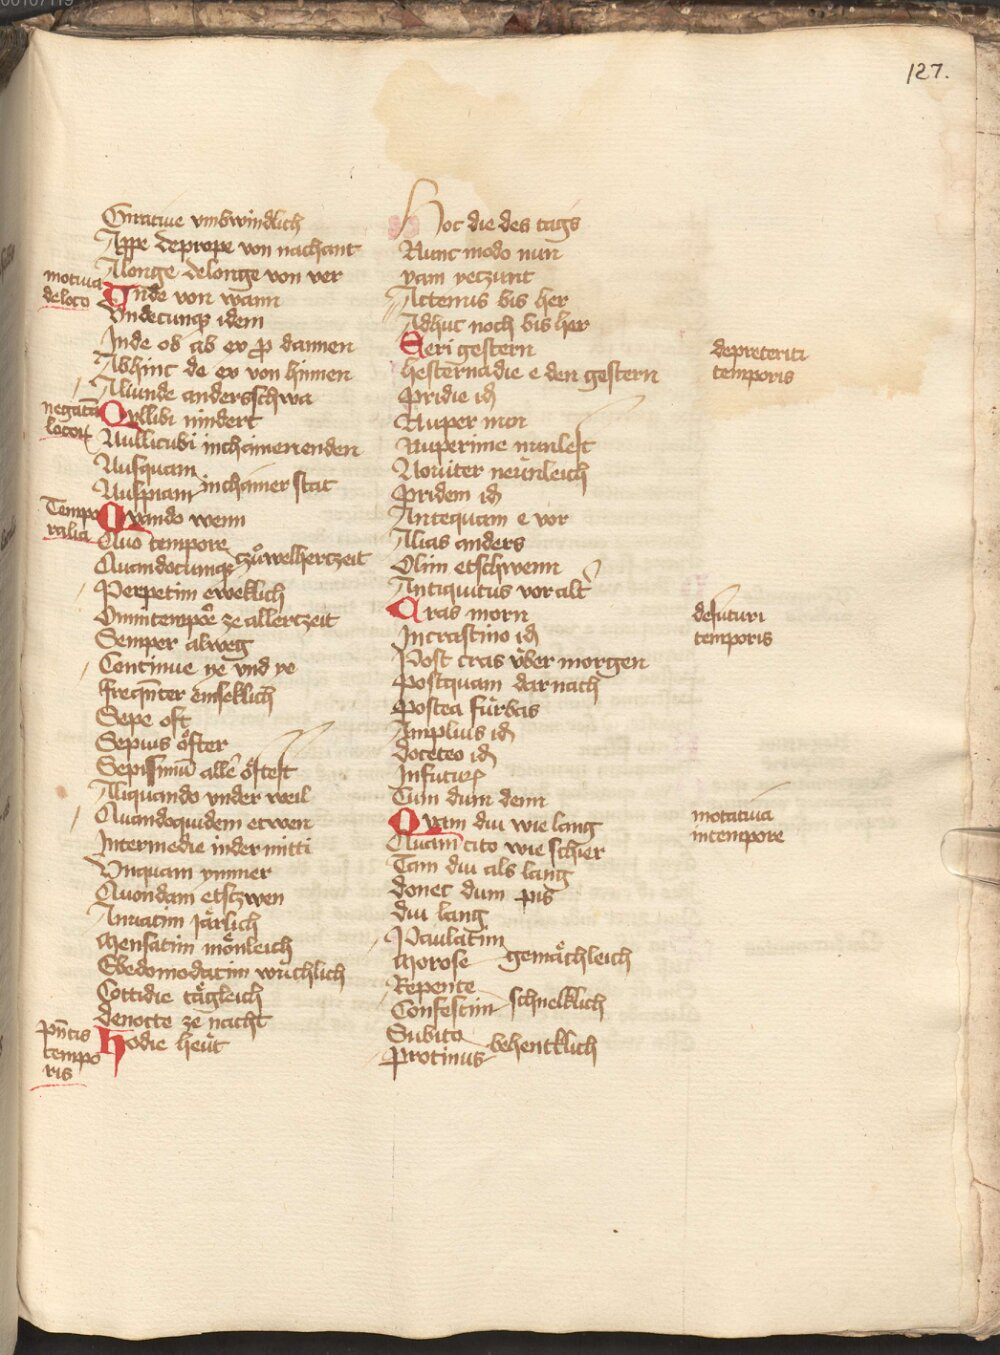 127.
Giratiue vmbwindlich
Appe deprope von nachant
Alonge delonge von ver
motiua
deloco
Vnde von wann
Vndecunqꝫ idem
Inde ob ab ex ꝓ dannen
Abhinc de ex von hinnen
Aliunde andersschwa
negatiũ
locoꝝ
Nyllibi nindert
Nullicubi inchainenenden
Nusquam
Nuspiam inchainer stat
Tempo
ralia
Qvando wenn
Quo tempore
Quandocunqꝫ zuͦwelherczeit
Perpetim eweklich
Omnitempoꝛe ze allerczeit
Semper alweg
Continue ye vnd ye
ffreqn̄ter emseklich
Sepe oft
Sepius oͤfter
Sepissimū alleꝛ oͤftest
Aliquando vnder weil
Quandoquidem etwen
Intermedie indermitti
Vnquam ymmer
Quondam etszwen
Annatim jaͤrlich
Mensatim moͤnleich
Ebedomodatim wuͤchlich
Cottidie taͤgleich
denocte ze nacht
pn̄tis
tempo
ris
Hodie heuͤt
Hoc die des tags
Nunc modo nun
yam yeczunt
Actenus bis her
Adhuc noch bis her
depreteriti
temporis
Heri gestern
hesternadie e den gestern
Pridie id
Nuper nun
Nuperime nunlest
Nouiter neuͤnleich
Pridem id
Antequam e vor
Alias anders
Olim etschwenn
Antiquitus vor alt
defuturi
temporis
Cras morn
Incrastino id
Post cras uͤber morgen
Postquam darnach
Postea fuͤrbas
Amplius id
doceteo id
Infutuꝝ
Cum dum denn
motatiua
intempore
Qvam diu wie lang
Quam cito wie schier
Tam diu als lang
donec dum pis
diu lang
Paulatim
Morose gemaͤchleich
Repente
Confestim schnelklich
Subito
Protinus behentklich